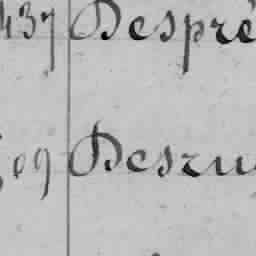 437 Despré
09 Desru